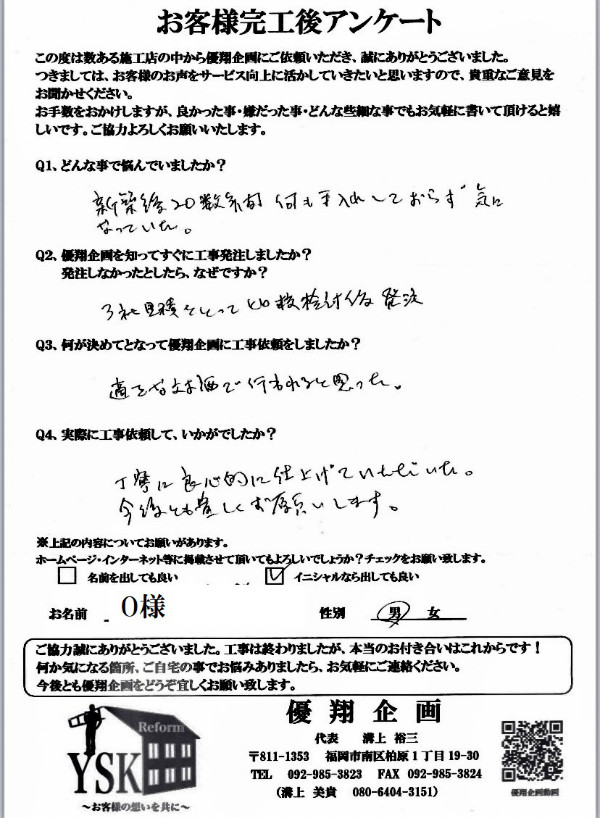 お客様完工後アンケート
この度は数ある施工店の中から優翔企画にご依頼いただき、誠にありがとうございました。
つきましては、お客様のお声をサービス向上に活かしていきたいと思いますので、貴重なご意見を
お聞かせください。
お手数をおかけしますが、良かった事・嫌だった事・どんな些細な事でもお気軽に書いて頂けると嬉
しいです。ご協力よろしくお願いいたします。
Q1、どんな事で悩んでいましたか？
新築後20数年間 何も手入れしておらず 気に
なっていた。
Q2、優翔企画を知ってすぐに工事発注しましたか？
発注しなかったとしたら、なぜですか？
3社見積をとって比較検討後発注
Q3、何が決めてとなって優翔企画に工事依頼をしましたか？
適正な
で行われると思った。
Q4、実際に工事依頼して、いかがでしたか？
丁寧に良心的に仕上げていただいた。
今後とも宜しくお願いします。
※上記の内容についてお願いがあります。
ホームページ・インターネット等に掲載させて頂いてもよろしいでしょうか？チェックをお願い致します。
名前を出しても良い イニシャルなら出しても良い
お名前 O様 性別 男 女
ご協力誠にありがとうございました。工事は終わりましたが、本当のお付き合いはこれからです！
何か気になる箇所、ご自宅の事でお悩みありましたら、お気軽にご連絡ください。
今後とも優翔企画をどうぞ宜しくお願い致します。
Reform
YSK
～お客様の想いを共に～
優翔企画
代表 溝上 裕三
〒811-1353 福岡市南区柏原1丁目19-30
TEL 092-985-3823 FAX 092-985-3824
（溝上 美貴 080-6404-3151）
優翔企画動画